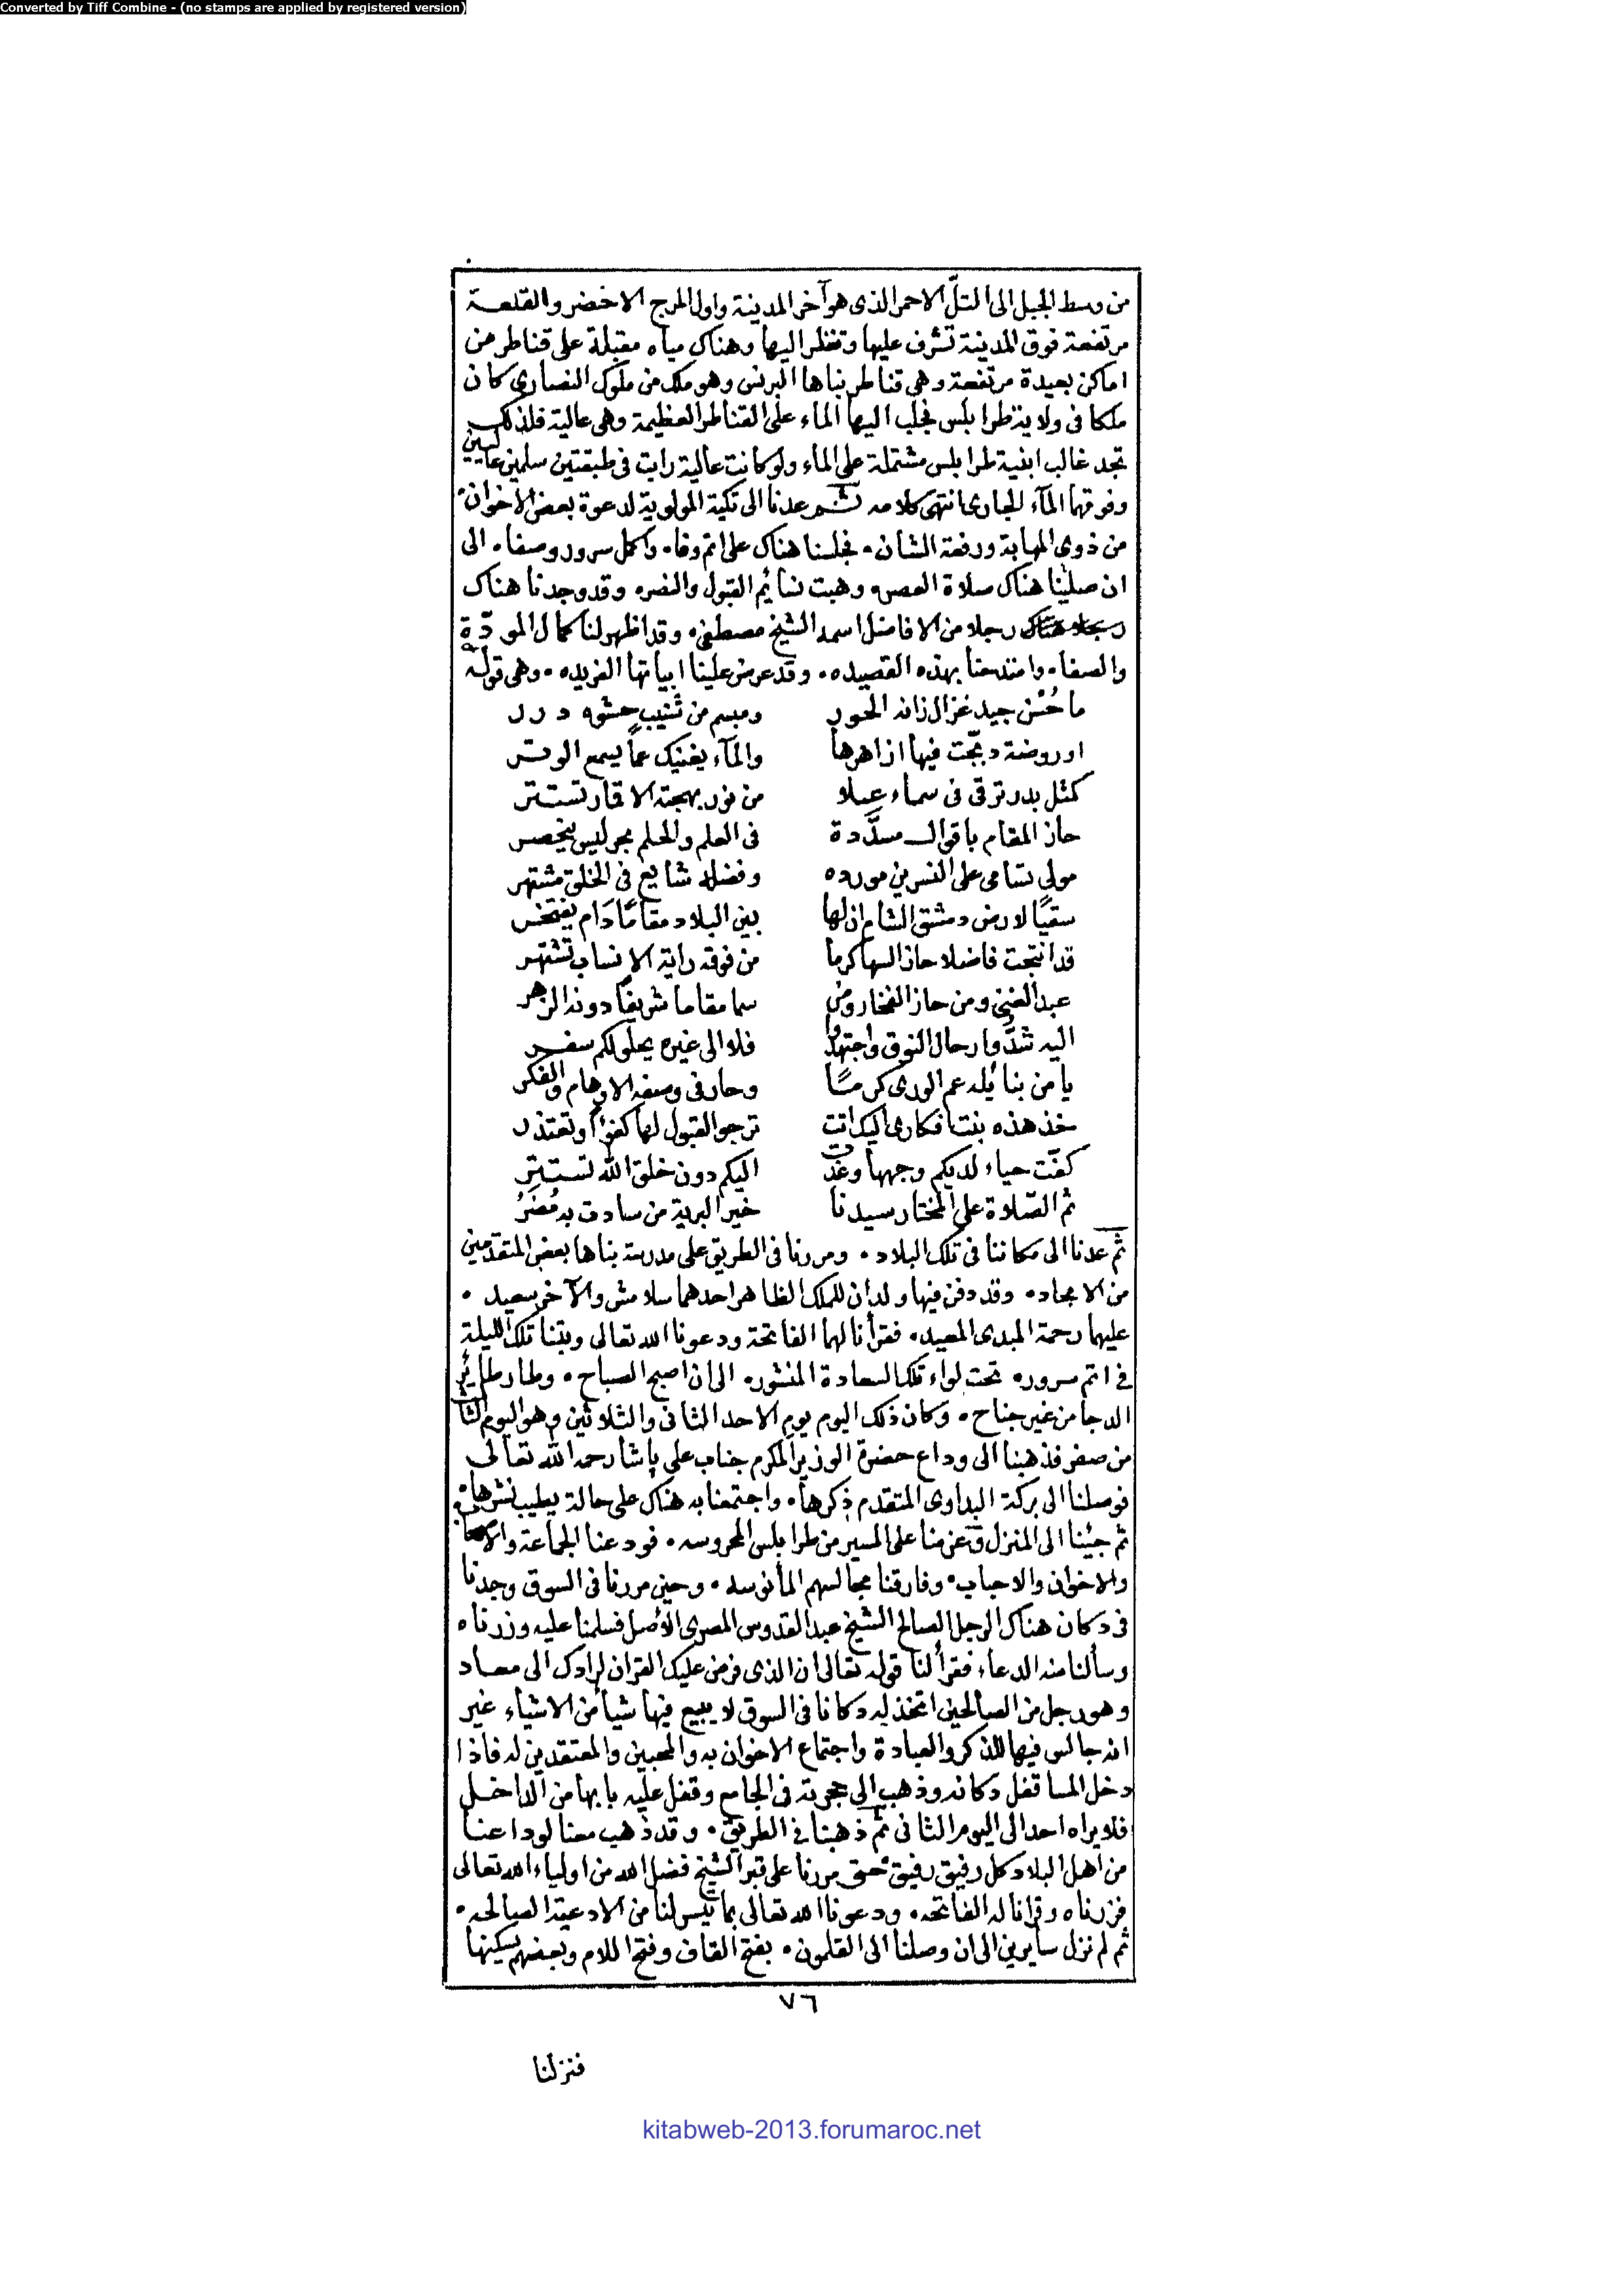 Converted by Tiff Combine - (no stamps are applied by registered version)
من وسط الجبل الى التلّ الاحمر الذى هو آخر المدينة واول المرج الاخضر والقلعة
مرتفعة فوق المدينة تشرف عليها وتنظر اليها وهناك مياه مقبلة على قناطر من
اماكن بعيدة مرتفعة وهى قناطر بناها البرنس وهو ملك من ملوك النصارى كان
ملكا فى ولاية طرابلس فجلب اليها الماء على القناطر العظيمة وهى عالية فلذلك
تجد غالب ابنية طرابلس مشتملة على الماء ولو كانت عالية رايت فى طبقتين سلمين عاليين
وفوقهما المآء الجارى انتهى كلامه ثم عدنا الى تكية المولوية لدعوة بعض الاخوان
من ذوى المهابة ورفعة الشان ٠ فجلسنا هناك على اتم وفا ٠ واكمل سرور وصفا ٠ الى
ان صلينا هناك صلاة العصر ٠ وهبت نسائم القبول والنصر ٠ وقد وجدنا هناك
رجلا من الافاضل اسمه الشيخ مصطفى ٠ وقد اظهر لنا كمال المودّة
والصفا ٠ وامتدحنا بهذه القصيده ٠ وقد عرض علينا ابياتها الفريده ٠ وهى قوله
ما حُسْن جيد غزال زانه الحور ومبسم من شنيب حشوه درر
او روضة دبّجت فيها ازاهرها والمآء يغنيك عما يسمع الوتر
كمثل بدر ترقى فى سماء عُلا من نور بهجته الاقمار تستتر
حاز المقام باقوال مسدَّدة فى العلم والحلم بحر ليس ينحصر
مولى تسامى على النسرين مورده وفضله شايع فى الخلق مشتهر
سقيًا لارض دمشق الشام ان لها بين البلاد مقامًا دَام يفتخر
قد انتجت فاضلا حاز السها كرما من فوقه راية الانساب تشتهر
عبد الغنى ومن حاز الفخار ومن سما مقاما شريفًا دونه الزهر
اليه شدُّوا رحال النوق واجتهدُوا فلا الى غيره يحلو لكم سفر
يا من بنائله عم الورى كرمًا وحار فى وصفه الاوهام والفكر
خذ هذه بنت افكارى اليك اتت ترجو القبول لها كفؤًا وتعتذر
كفّت حياء لديكم وجهها وغدت اليكم دون خلق الله تستتر
ثم الصّلاة على المختار سيدنا خير البرية من سادت به مُضَرُ
ثم عدنا الى مكاننا فى تلك البلاد ٠ ومررنا فى الطريق على مدرسة بناها بعض المتقدّمين
من الامجاد ٠ وقد دفن فيها ولدان للملك الظاهر احدهما سلامش والآخر سعيد ٠
عليهما رحمة المبدى المعيد ٠ فقرأنا لهما الفاتحة ودعونا الله تعالى وبتنا تلك الليلة
فى اتم سرور ٠ تحت لواء تلك السعادة المنشور ٠ الى ان اصبح الصباح ٠ وطار طائر
الدجا من غير جناح ٠ وكان ذلك اليوم يوم الاحد الثانى والثلاثين وهو اليوم
من صفر فذهبنا الى وداع حضرة الوزير المكرم جناب على باشا رحمه الله تعالى
فوصلنا الى بركة البداوى المتقدم ذكرها ٠ واجتمعنا به هناك على حالة يطيب نشرها ٠
ثم جئنا الى المنزل وعزمنا على المسير من طرابلس المحروسه ٠ فودعنا الجماعة
والاخوان والاحباب ٠ وفارقنا مجالسهم المأنوسه ٠ وحين مررنا فى السوق وجدنا
فى دكان هناك الرجل الصالح الشيخ عبد القدوس المصرى الأصل فسلمنا عليه وزرناه
وسألنا منه الدعاء فقرأ لنا قوله تعالى ان الذى فرض عليك القران لرادك الى معاد
وهو رجل من الصالحين اتخذ له دكانا فى السوق لا يبيع فيها شيأ من الاشياء غير
انه جالس فيها للذكر والعبادة واجتماع الاخوان به والمحبين والمعتقدين له فاذا
دخل المسا قفل دكانه وذهب الى حجرته فى الجامع وقفل عليه بابها من الداخل
فلا يراه احد الى اليوم الثانى ثم ذهبنا فى الطريق ٠ وقد ذهب معنا لوداعنا
من اهل البلاد كل رفيق رفيق حتى مررنا على قبر الشيخ فضل الله من اولياء الله تعالى
فزرناه وقرانا له الفاتحه ٠ ودعونا الله تعالى بما تيسر لنا من الادعية الصالحه ٠
ثم لم نزل سايرين الى ان وصلنا الى القلمون ٠ بفتح القاف وفتح اللام وبعضهم يسكنها
٧٦
فنزلنا
kitabweb-2013.forumaroc.net